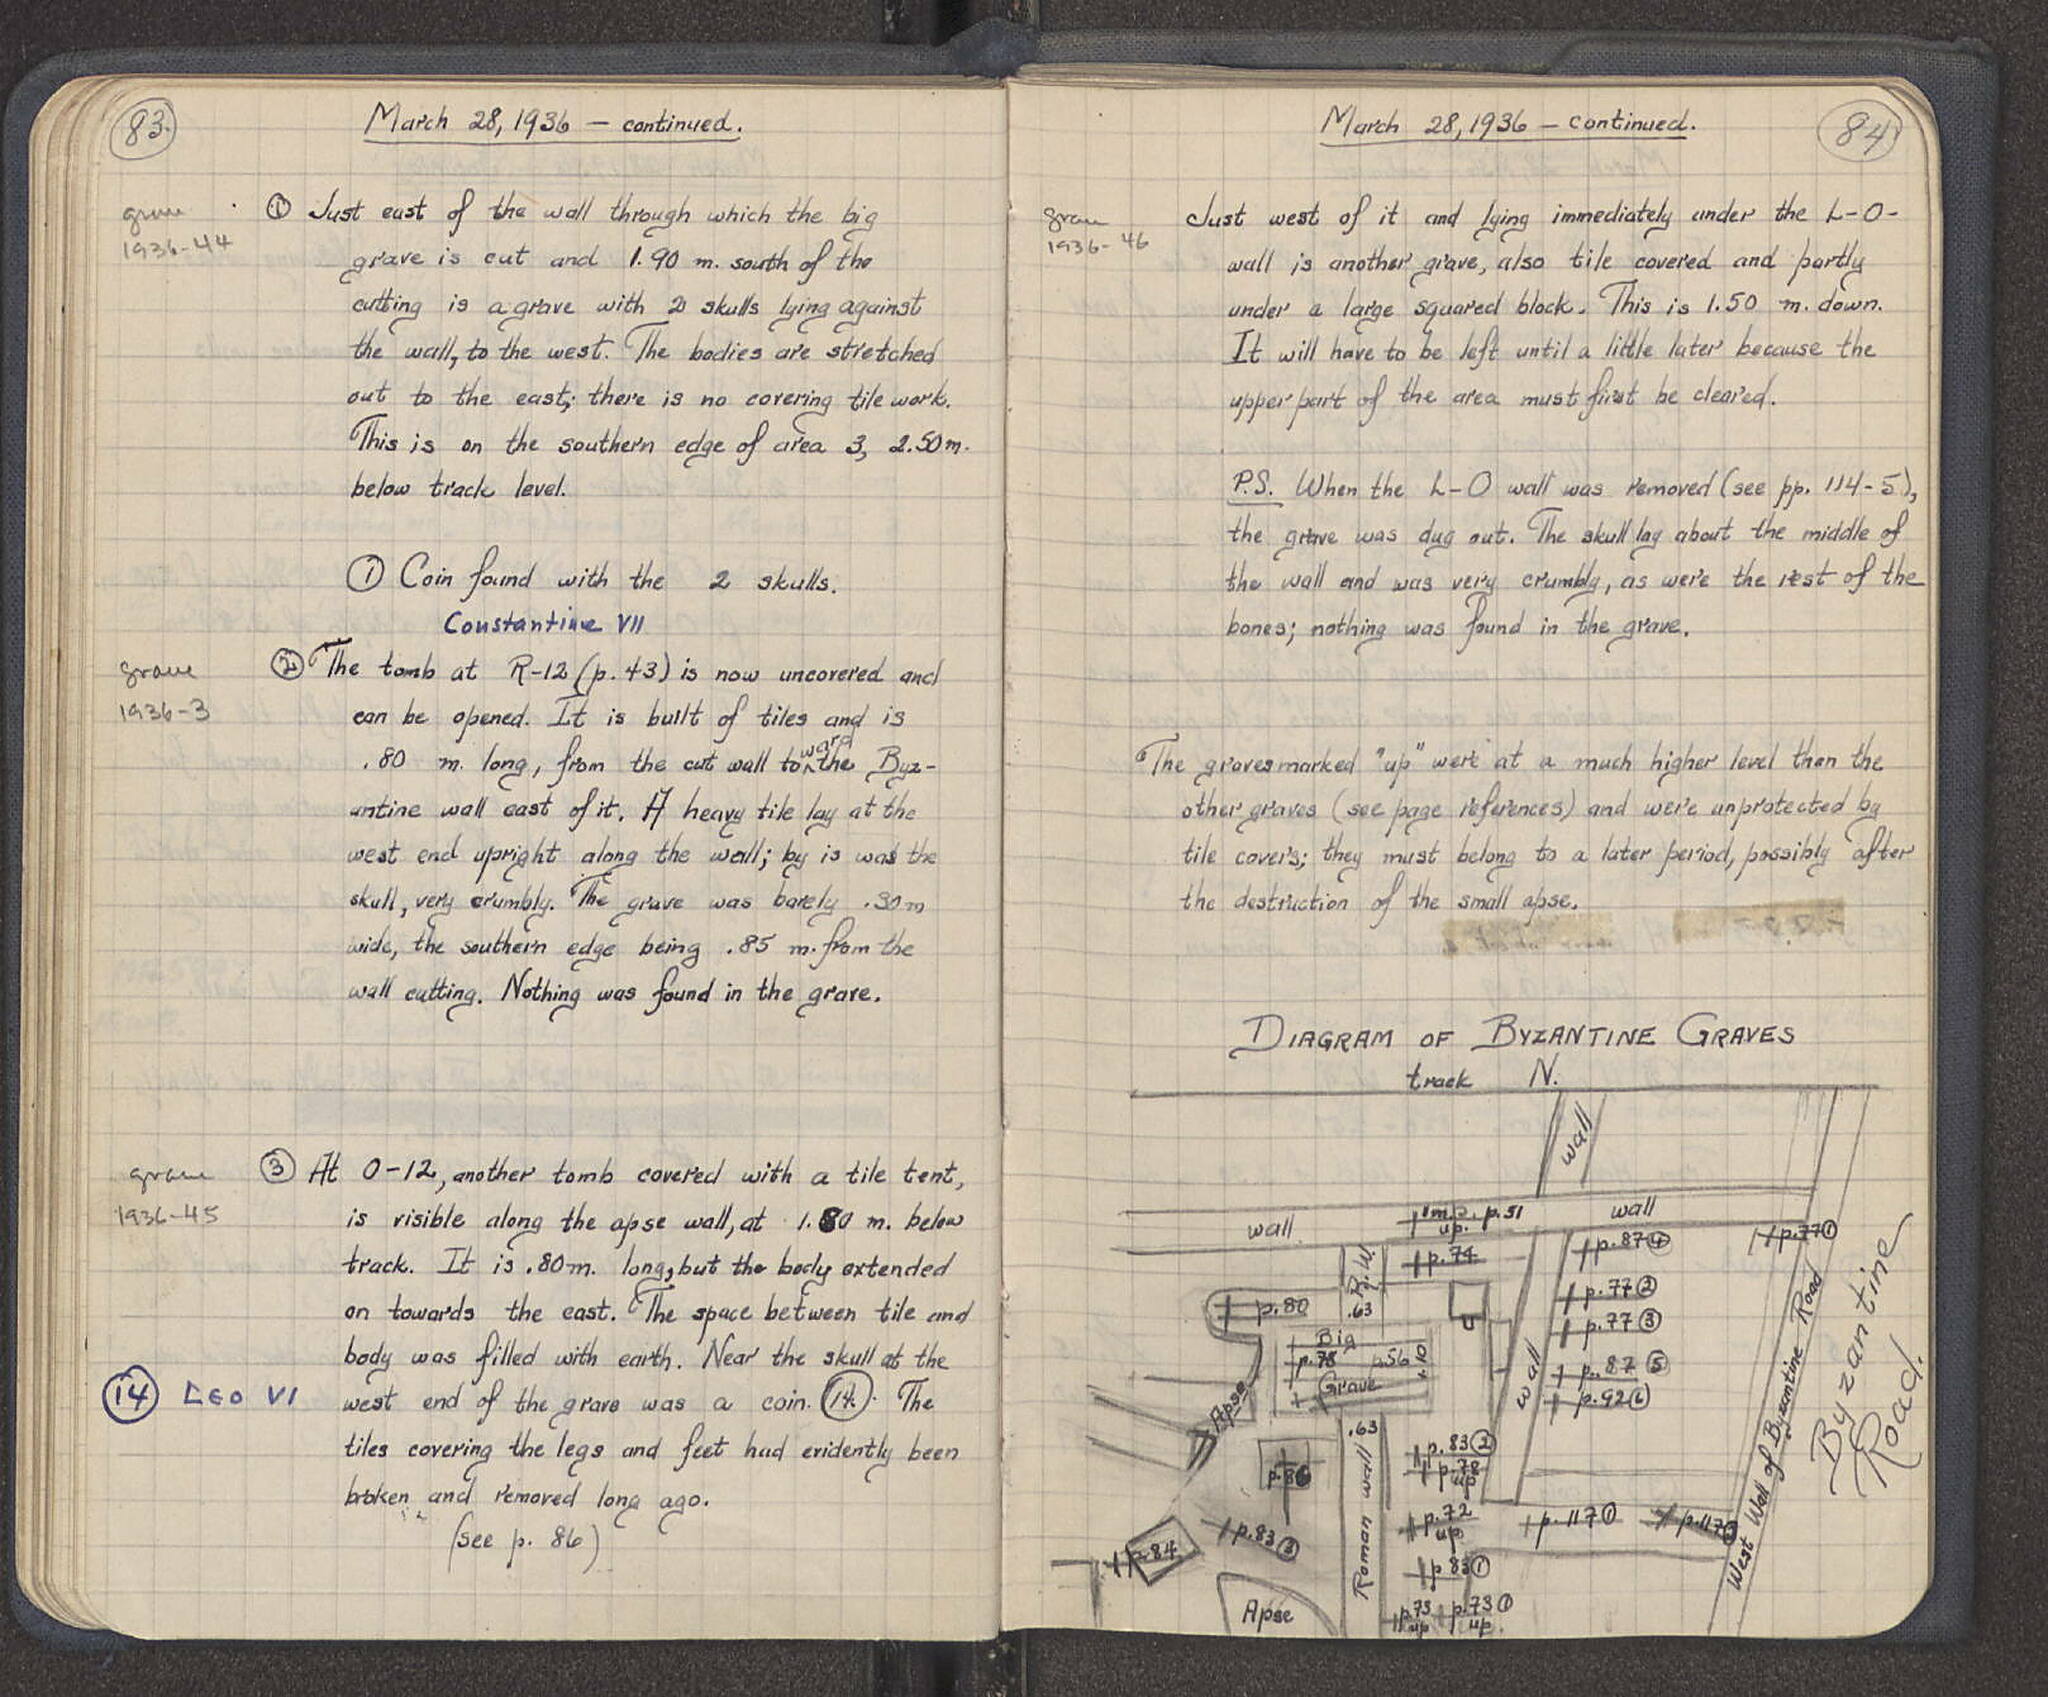 83.
March 28, 1936 – continued.
grave
1936-44
① Just east of the wall through which the big
grave is cut and 1.90 m. south of the
cutting is a grave with 2 skulls lying against
the wall, to the west. The bodies are stretched
out to the east; there is no covering tile work.
This is on the southern edge of area 3, 2.50 m.
below track level.
① Coin found with the 2 skulls.
Constantine VII
grave
1936-3
② The tomb at R-12 (p. 43) is now uncovered and
can be opened. It is built of tiles and is
.80 m. long, from the cut wall toward the Byz-
antine wall east of it. A heavy tile lay at the
west end upright along the wall; by is was the
skull, very crumbly. The grave was barely .30 m
wide, the southern edge being .85 m. from the
wall cutting. Nothing was found in the grave.
grave
1936-45
③ At O-12, another tomb covered with a tile tent,
is visible along the apse wall, at 1.80 m. below
track. It is .80 m. long, but the body extended
on towards the east. The space between tile and
body was filled with earth. Near the skull at the
⑭ LEO VI west end of the grave was a coin. ⑭. The
tiles covering the legs and feet had evidently been
broken and removed long ago.
(see p. 86)
84
March 28, 1936 – continued.
grave
1936-46
Just west of it and lying immediately under the L-O-
wall is another grave, also tile covered and partly
under a large squared block. This is 1.50 m. down.
It will have to be left until a little later because the
upper part of the area must first be cleared.
P.S. When the L-O wall was removed (see pp. 114-5),
the grave was dug out. The skull lay about the middle of
the wall and was very crumbly, as were the rest of the
bones; nothing was found in the grave.
The graves marked "up" were at a much higher level than the
other graves (see page references) and were unprotected by
tile covers; they must belong to a later period, possibly after
the destruction of the small apse.
DIAGRAM OF BYZANTINE GRAVES
track N.
wall
wall
p. 51
up.
wall
p. 77①
p. 87④
p. 74
R.W.
.63
p. 77②
p. 80
p. 77③
Big
p. 78 p. 56
Grave
wall
p. 87⑤
p. 92⑥
Apse
.63
p. 83②
p. 78
up
p. 86
Roman wall
p. 72
up.
p. 117①
p. 117
p. 83③
p. 84
p. 83①
Apse
p. 73
up
p. 73①
up.
West Wall of Byzantine Road
Byzantine
Road.